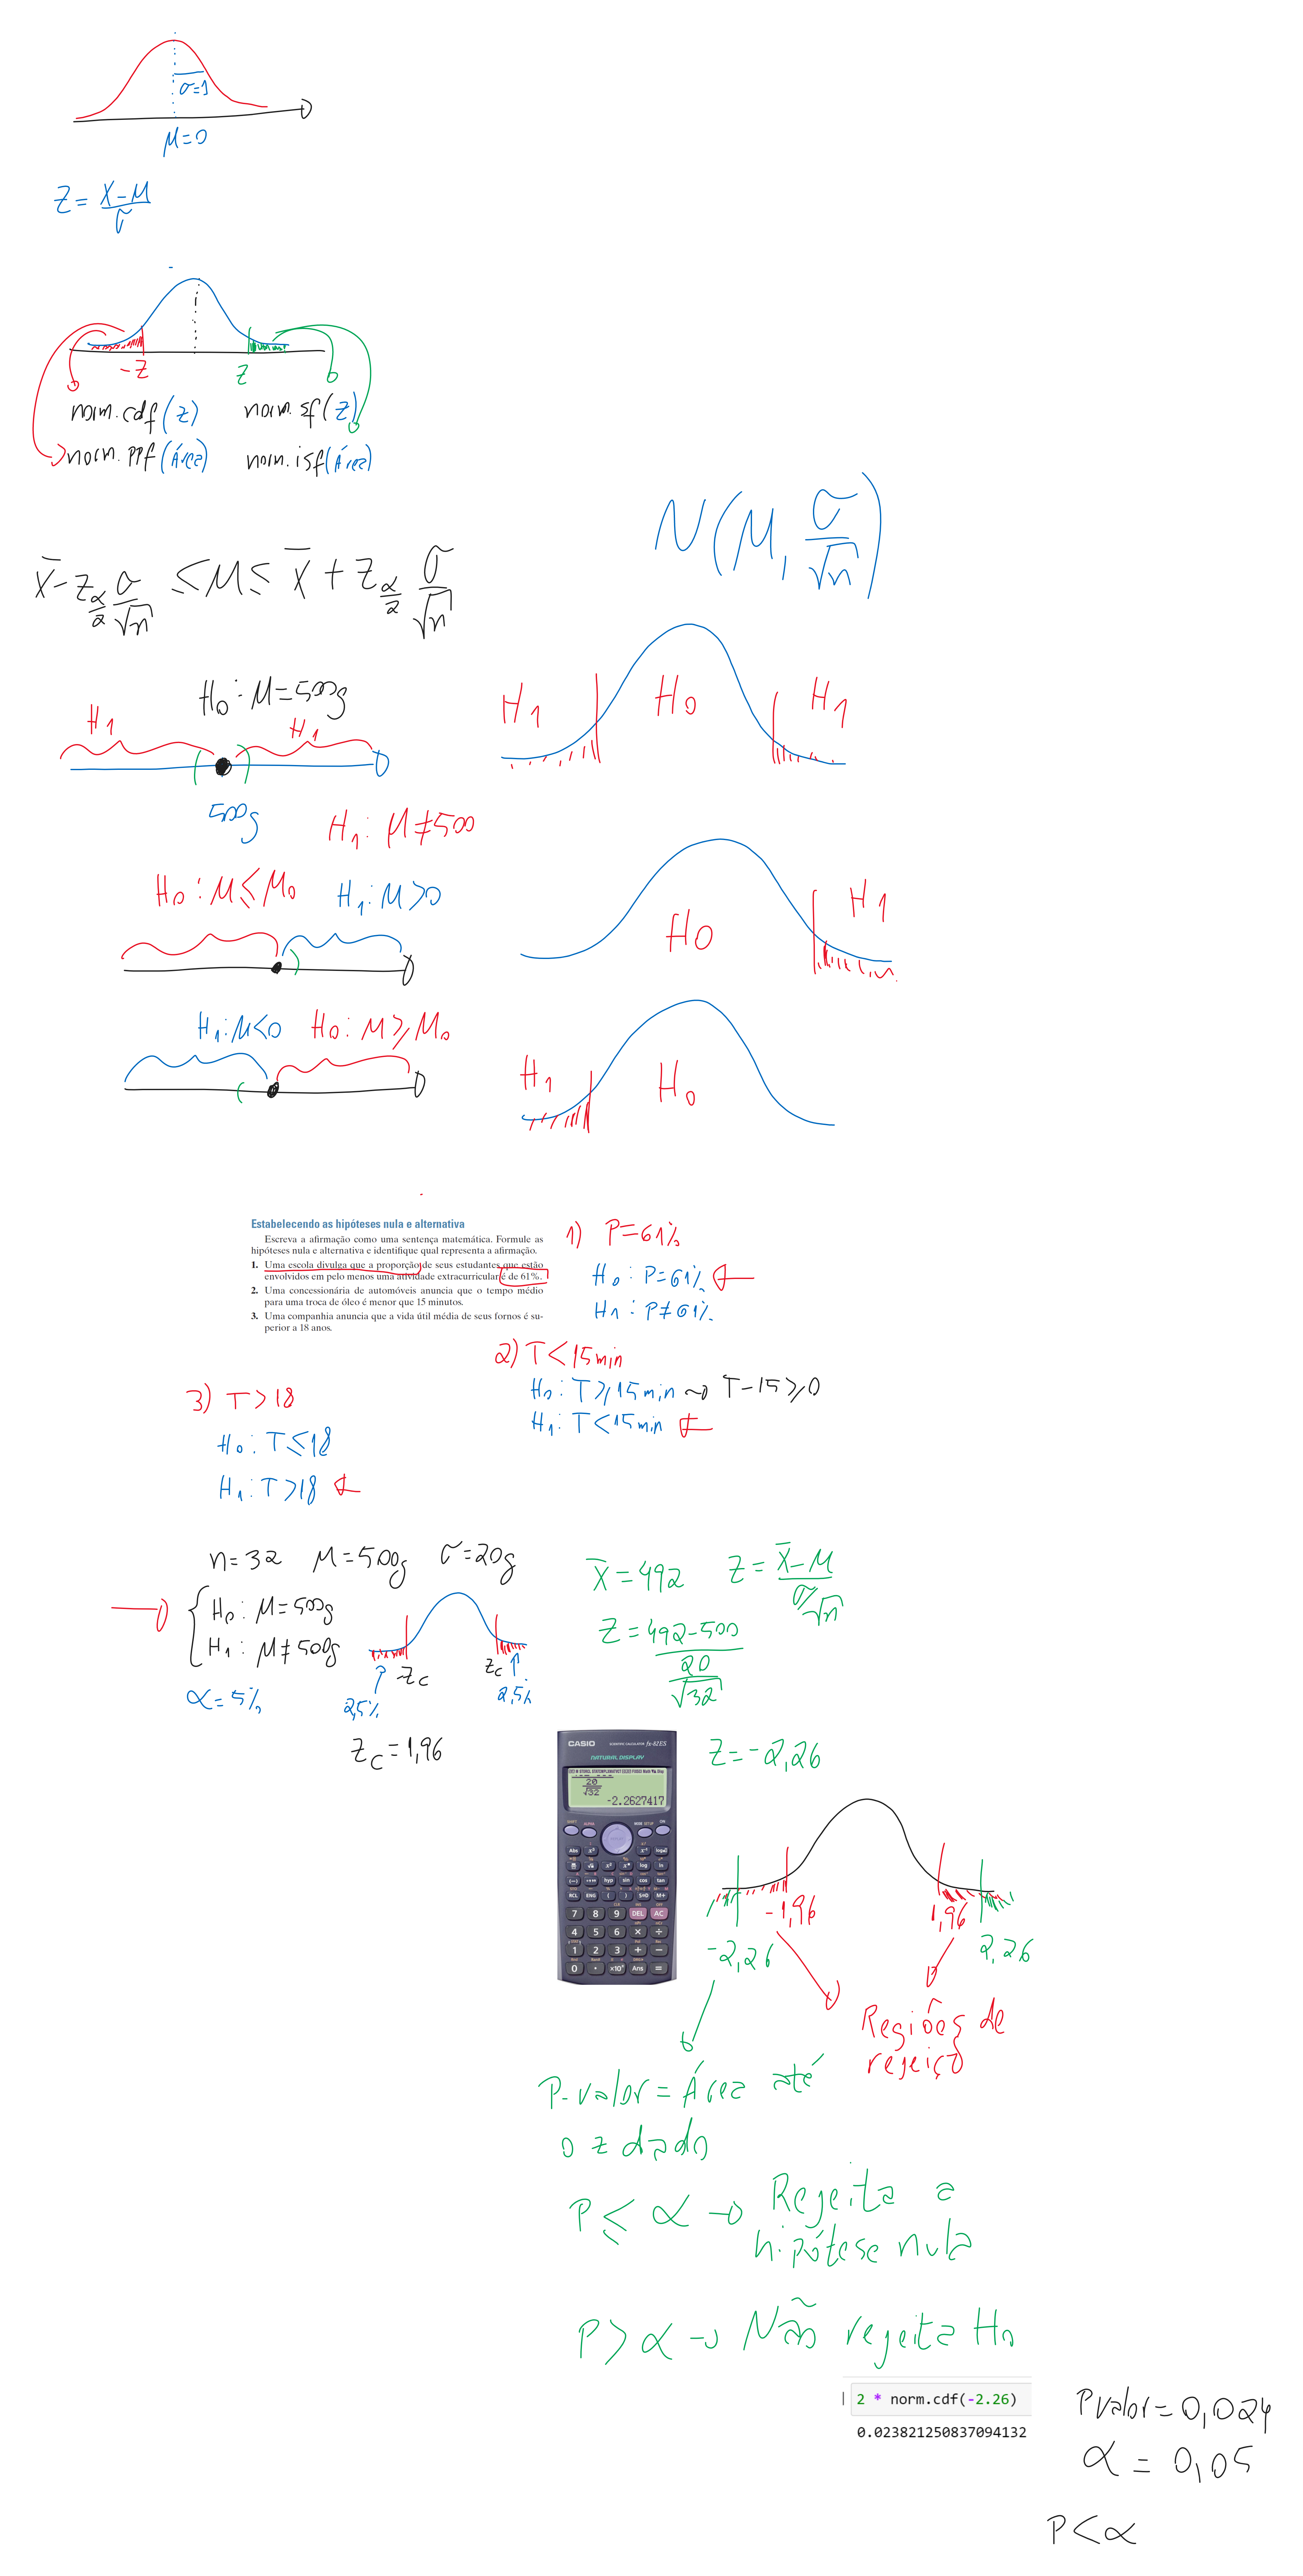 σ=1
μ=0
Z = (X-μ)/σ
-Z
Z
norm.cdf(z)
norm.sf(z)
norm.ppf(Área)
norm.isf(Área)
N(μ, σ/√n)
x̄ - z α/2 σ/√n ≤ μ ≤ x̄ + z α/2 σ/√n
H0: μ=500g
H1
H1
500g
H1: μ≠500
H1
H0
H1
H0: μ≤μ0
H1: μ>0
H0
H1
H1: μ<0
H0: μ≥μ0
H1
H0
Estabelecendo as hipóteses nula e alternativa
Escreva a afirmação como uma sentença matemática. Formule as
hipóteses nula e alternativa e identifique qual representa a afirmação.
1. Uma escola divulga que a proporção de seus estudantes que estão
envolvidos em pelo menos uma atividade extracurricular é de 61%.
2. Uma concessionária de automóveis anuncia que o tempo médio
para uma troca de óleo é menor que 15 minutos.
3. Uma companhia anuncia que a vida útil média de seus fornos é su-
perior a 18 anos.
1) P=61%
H0: P=61%
H1: P≠61%
2) T<15min
H0: T≥15min → T-15≥0
H1: T<15min
3) T>18
H0: T≤18
H1: T>18
n=32 μ=500g σ=20g
H0: μ=500g
H1: μ≠500g
α=5%
-Zc
Zc
2,5%
2,5%
Zc=1,96
x̄=492
Z = (x̄-μ)/(σ/√n)
Z = (492-500)/(20/√32)
Z=-2,26
CASIO
fx-82ES
NATURAL DISPLAY
20
√32
-2.2627417
Abs
hyp sin cos tan
RCL ENG ( ) S⇔D M+
7 8 9 DEL AC
4 5 6 × ÷
1 2 3 + −
0 . ×10ˣ Ans =
-1,96
1,96
-2,26
2,26
Regiões de
rejeiçõ
P-valor = Área até
o z dado
P ≤ α → Rejeita a
hipótese nula
P > α → Não rejeita H0
2 * norm.cdf(-2.26)
0.023821250837094132
Pvalor = 0,024
α = 0,05
P<α